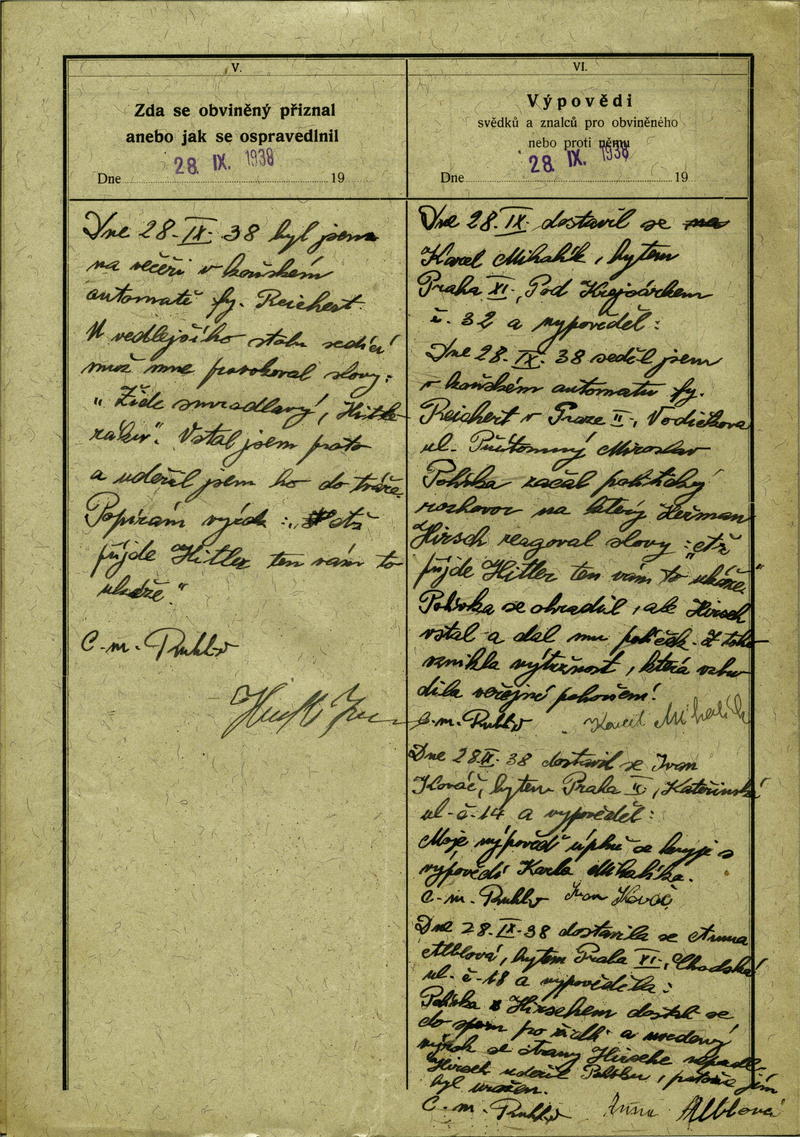 V.
Zda se obviněný přiznal
anebo jak se ospravedlnil
28. IX. 1938
Dne 19
Dne 28. IX. 38 byl jsem
na večeři v košském
automatě fy. Reichert.
U vedlejšího stolu sedící
muž mne provokoval slovy:
"Žide smradlavý,
Vstal jsem proto
a udeřil jsem ho do tváře.
Popírám výrok: „
půjde Hitler ten vám to
ukáže."
C. m.
VI.
Výpovědi
svědků a znalců pro obviněného
nebo proti němu
28. IX. 1938
Dne 19
Dne 28. IX. dostavil se na
Karel Mihalík, bytem
Praha XI., Pod Krejcárkem
č. 32 a vypověděl:
Dne 28. IX. 38 seděl jsem
v košském automatu fy.
Reichert v Praze II., Vodičkova
ul. Přítomný Miroslav
Polívka začal politický
rozhovor na který Heřman
Hirsch reagoval slovy:
půjde Hitler ten vám to ukáže."
Polívka se ohradil, ale Hirsch
vstal a dal mu políček. Z toho
vznikla výtržnost, která vzbu
dila veřejné pohoršení!
C. m. Karel Mihalík
Dne 28. IX. 38 dostavil se Ivan
Kováč, bytem Praha II., Kateřinská
ul. č. 14 a vypověděl:
Moje výpověď úplně se kryje s
výpovědí Karla Mihalíka.
C. m. Ivan Kováč
Dne 28. IX. 38 dostavila se Anna
Alblová, bytem Praha XI., Chodská
ul. č. 18 a vypověděla:
Polívka s Hirschem dostal se
do sporu pro židli a uvedený
výrok se strany Hirsche nepadl.
Hirsch udeřil Polívku, protože jím
byl uražen.
C. m. Anna Alblová